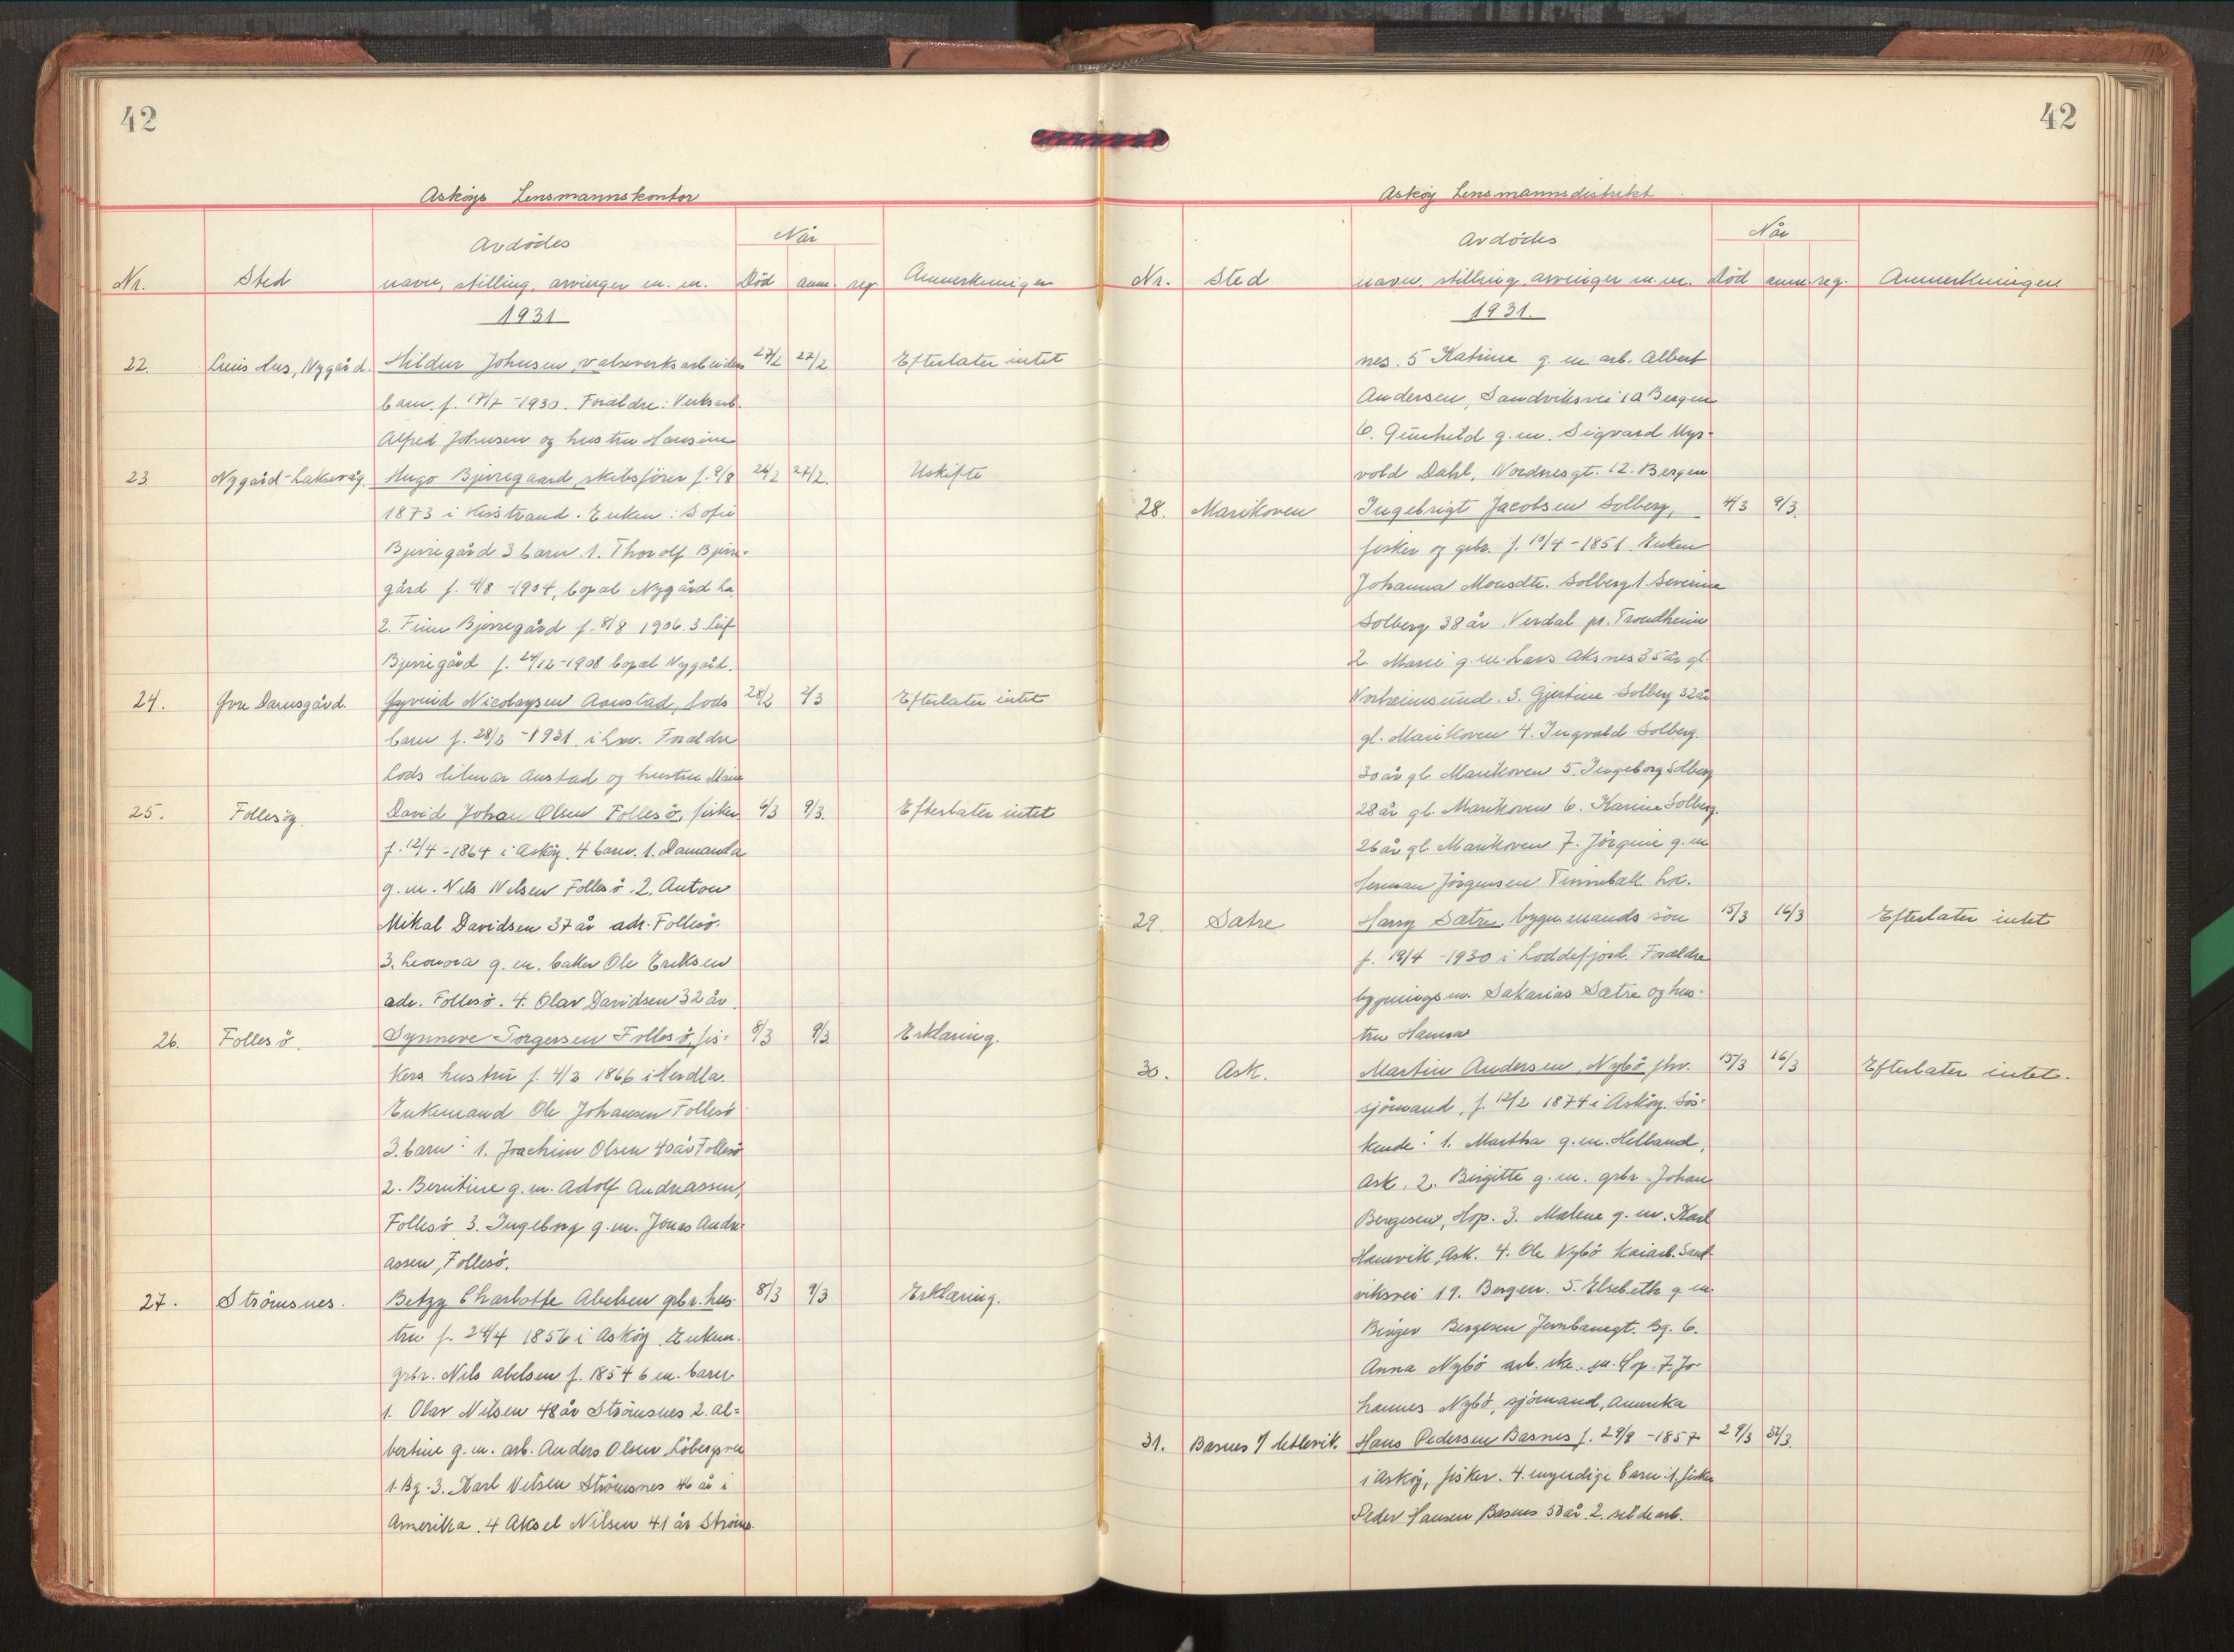 42
Askøys Lensmannskontor
Avdødes
Når
Nr. Sted navn, stilling, arvinger m. m. Død anm. reg. Anmerkninger
1931
22. hus, Nygård. Hildur Johnsen, valseverksarbeiders 27/2 27/2 Efterlater intet
barn f. 17/7 -1930. Foraldre: Verksarb.
Alfred Johnsen og hustru Hansine
23 Nygård-Laksevåg. Hugo Bjerregaard, skibsfører f. 9/8 24/2 27/2. Uskifte
1873 i Kistrand. Enken: Sofie
Bjerregård 3 barn. 1. Thorolf Bjerre-
gård f. 4/8 -1904, bopal Nygård La.
2. Finn Bjerregård f. 8/8 1906. 3. Leif
Bjerregård f. 24/12-1908 bopal Nygård.
24. Øvre Damsgård. Øyvind Nicolaysen Aunstad, lods 28/2 2/3 Efterlater intet
barn f. 28/2 -1931. i Lax. Foraldre
Lods Hilmar Aunstad og hustru Marie
25. Follesøy. David Johan Olsen Follesø, fisker 6/3 9/3. Efterlater intet
f. 12/4-1864 i Askøy. 4 barn. 1. Damanda
g. m. Nils Nilsen Follesø. 2. Anton
Mikal Davidsen 37 år adr. Follesø.
3. Leonora g. m. baker Ole Eriksen
adr. Follesø. 4. Olav Davidsen 32 år.
26. Follesø. Synneve Torgersen Follesø, fis- 8/3 9/3 Erklaring.
kers hustru f. 4/3 1866 i Herdla.
Enkemand Ole Johansen Follesø
3. barn: 1. Joachim Olsen 40 år Follesø
2. Berntine g. m. Adolf Andreassen,
Follesø 3. Ingeborg g. m. Jonas Andre-
assen, Follesø.
27. Strömsnes. Betzy Charlotte Abelsen gbr. hus- 8/3 9/3 Erklaring.
tru f. 24/4 1856 i Askøy Enkem.
grbr. Nils Abelsen f. 1854 6 m. barn
1. Olav Nilsen 48 år Strömsnes 2. Al-
bertine g. m. arb. Anders Olsen Löbergsvei
1. Bg. 3. Karl Nilsen Strömsnes 46 år i
Amerika. 4 Aksel Nilsen 41 år Ströms-
42
Askøy Lensmannsdistrikt
Avdødes
Når
Nr. Sted navn, stilling, arvinger m. m. Død anm. reg. Anmerkninger
1931.
nes. 5 Katrine g. m. arb. Albert
Andersen, Sandviksvei 1a Bergen
6. Gunhild g. m. Sigvard Myr-
vold Dahl, Nordnesgt. 12. Bergen
28. Marikoven Ingebrigt Jacobsen Solberg, 4/3 9/3.
fisker og gbr. f. 19/4-1851. Enken
Johanna Monsdtr. Solberg 1. Severine
Solberg 38 år. Verdal pr. Trondheim
2. Marie g. m. Lars Aksnes 35 år gl.
Norheimsund. 3. Gjertine Solberg 32 år
gl. Marikoven 4. Ingvald Solberg.
30 år gl. Marikoven 5. Ingeborg Solberg
28 år gl. Marikoven 6. Karine Solberg.
26 år gl. Marikoven 7. Jörgine g. m.
Herman Jörgensen
29. Satre Harry Satre, bygn.mands sön 15/3 16/3 Efterlater intet
f. 19/4 -1930 i Loddefjord. Foraldre
bygningsm. Sakarias Satre og hus-
tru Hanna
30. Ask. Martin Andersen Nybö fhv. 15/3 16/3 Efterlater intet.
sjömand, f. 12/2 1874 i Askøy. Sös-
kende: 1. Martha g. m. Helland,
Ask, 2. Birgitte g. m. grbr. Johan
Bergesen, Hop. 3. Malene g. m. Karl
Hanevik, Ask. 4. Ole Nybö kaiarb. Sand-
viksvei 19. Bergen. 5. Elsebeth g. m.
Birger Bergesen Jernbanegt. Bg. 6.
Anna Nybö arb. ske. 7. Jo-
hannes Nybö, sjömand, Amerika
31. Basnes i/ Hetlevik. Hans Pedersen Basnes f. 29/8 -1857 29/3 31/3.
i Askøy, fisker. 4. myndige barn: 1. fisker
Peder Hansen Basnes 50 år. 2. sildearb.